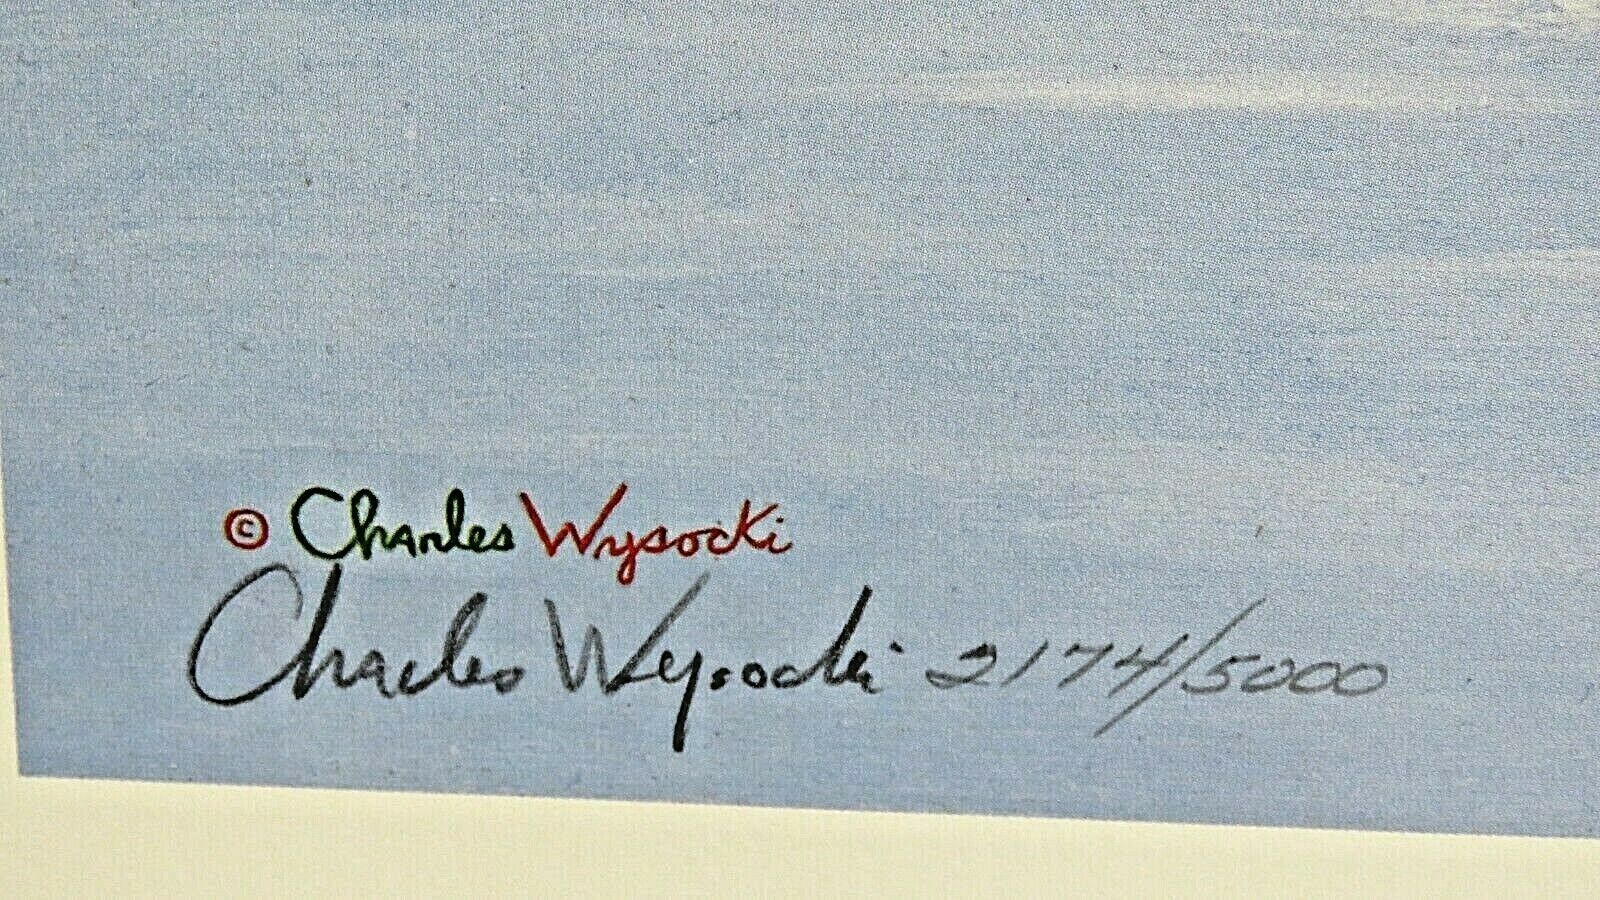 © Charles Wysocki
Charles Wysocki 2174/5000